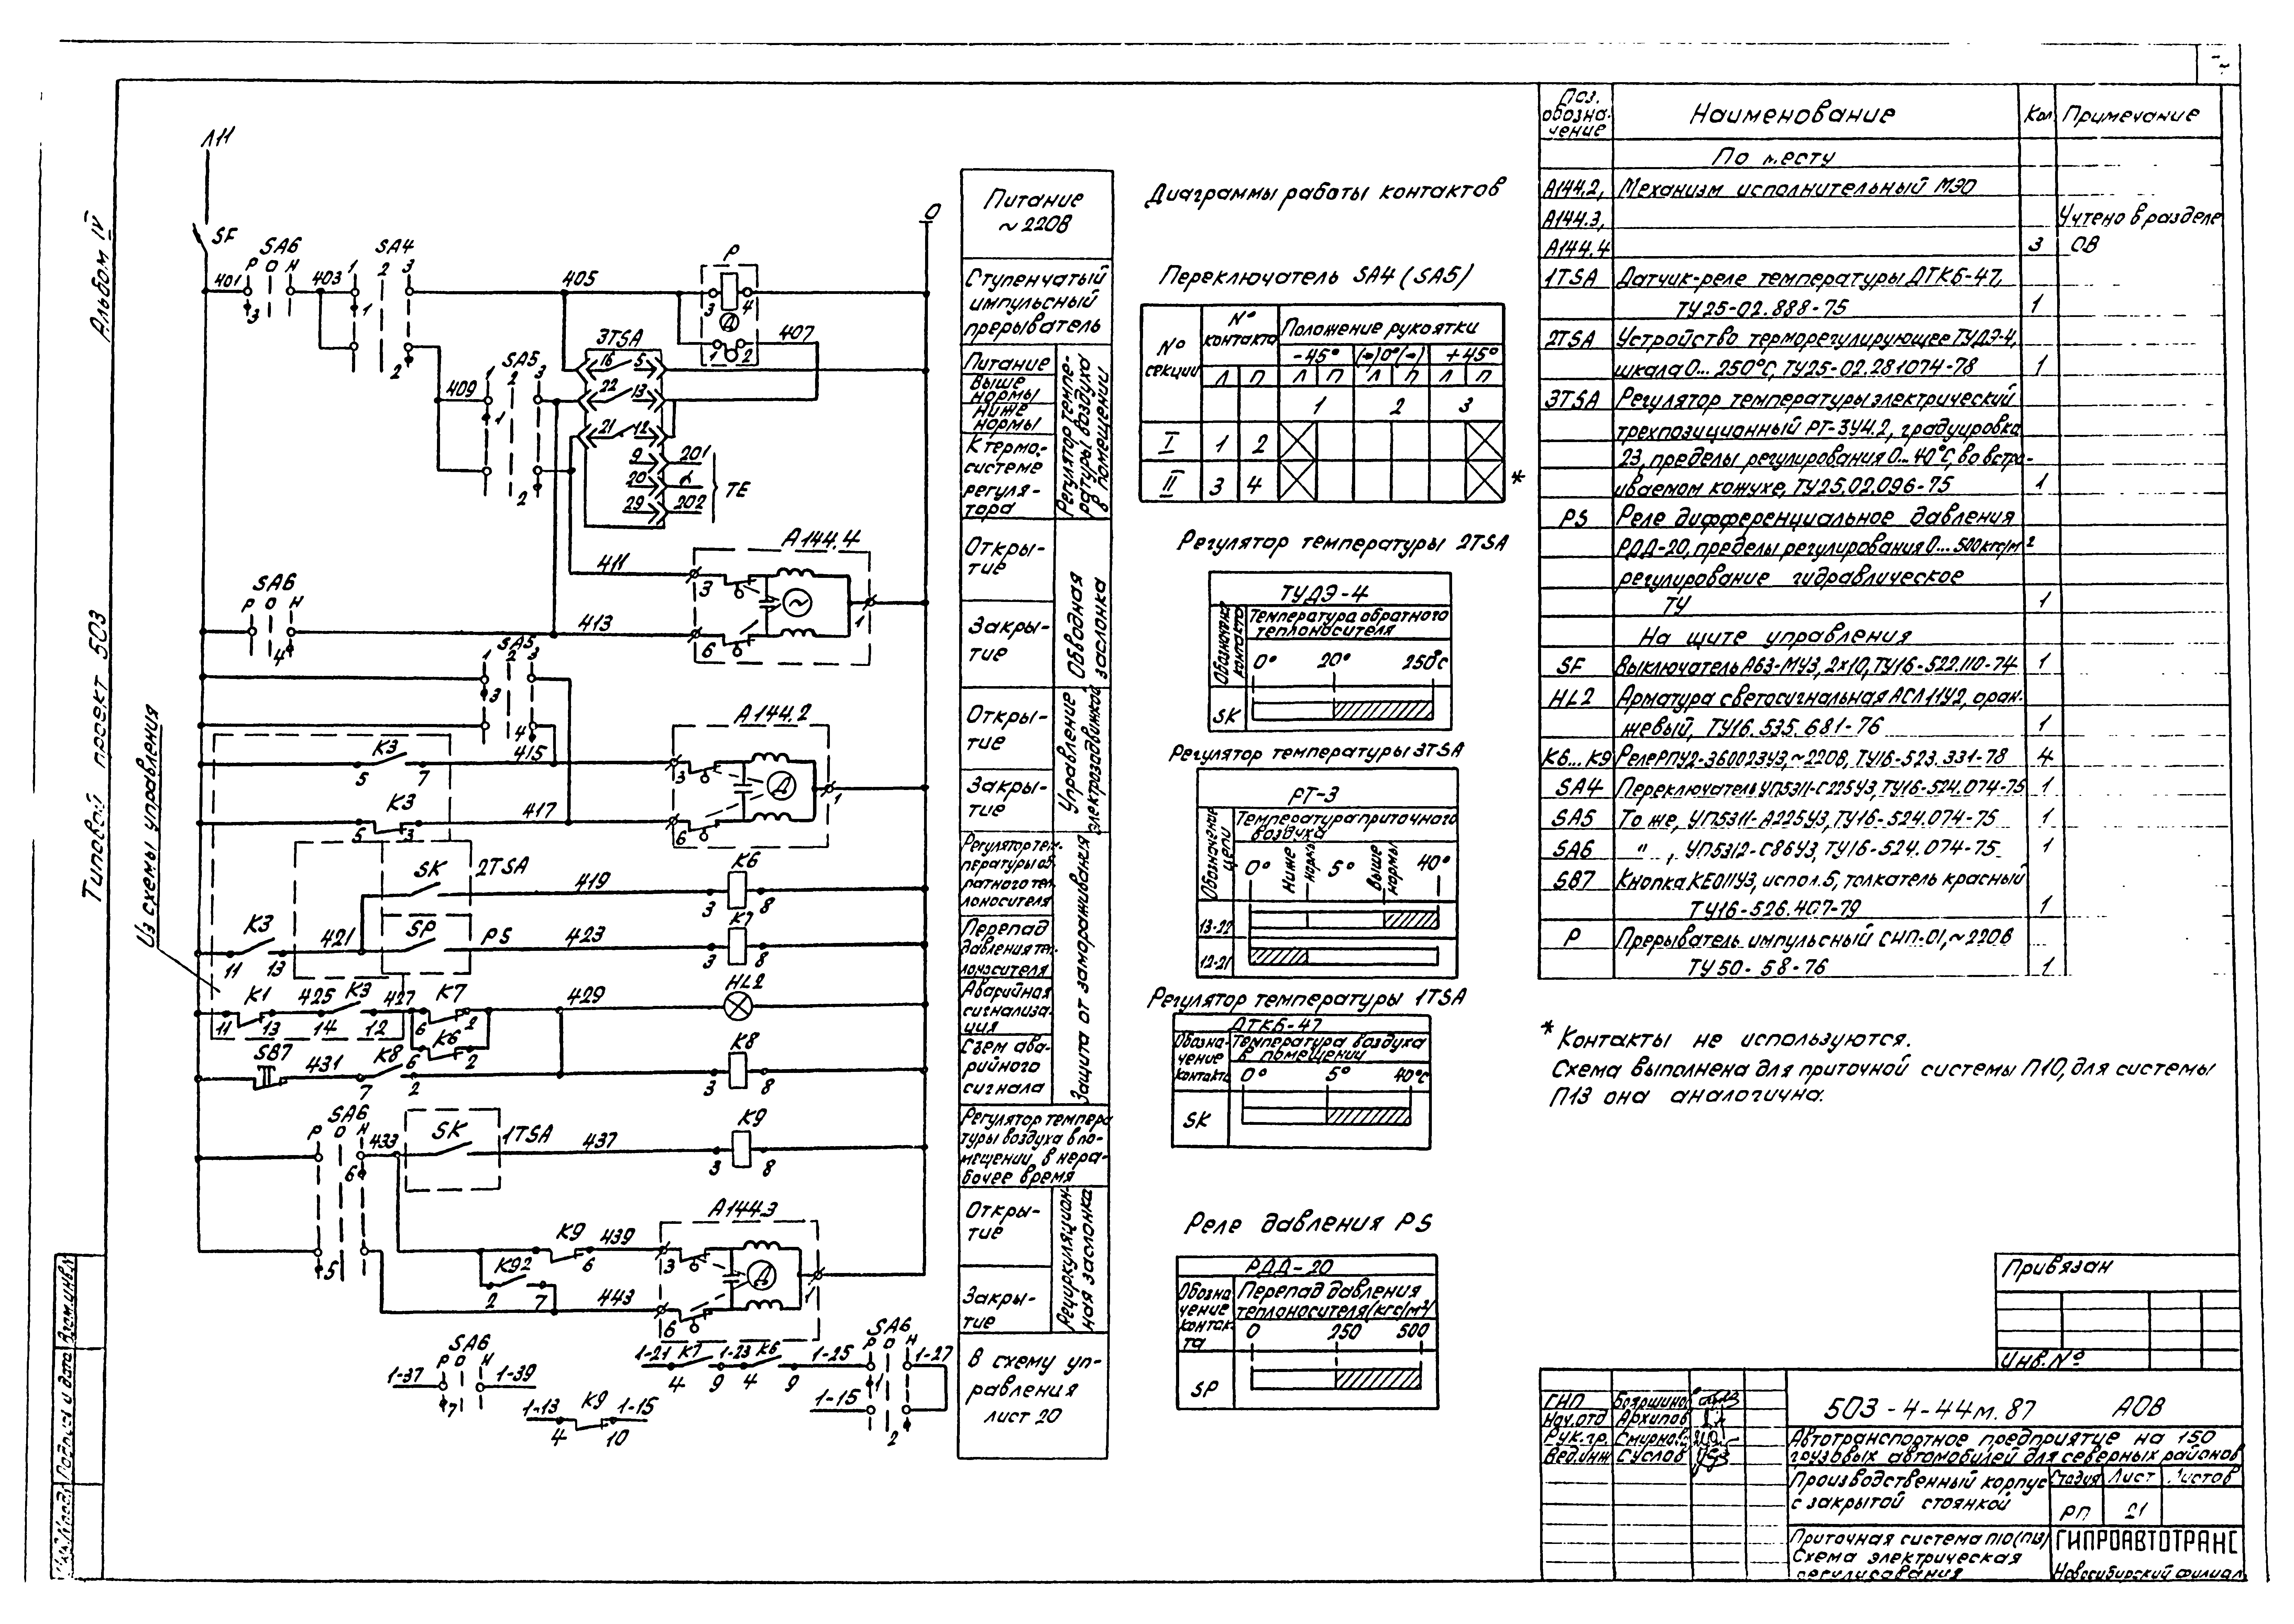 Альбом IV
Типовой проект 503
Из схемы управления
Л11
SF
SA6
Р О Н
401
3
403
SA4
1 2 3
1
2
405
Р
3 4
Д
1 2
407
0
3TSA
16 5
22 13
21 12
9 201
20
29 202
ТЕ
409
SA5
1 2 3
1
2
411
А144.4
3
6
1
SA6
Р О Н
4
413
SA5
1 2 3
3
4
415
А144.2
3
Д
6
1
К3
5 7
К3
5 3
417
SK 2TSA
419
К6
3 8
К3
11 13
421
SP PS
423
К7
3 8
К1
11 13
425
К3
14 12
427
К7
6 2
К6
6 2
429
HL2
SB7
431
К8
7 2
К8
3 8
SA6
Р О Н
6
5
433
SK 1TSA
437
К9
3 8
К9
6
439
К92
2 7
443
А144.3
3
Д
6
1
SA6
Р О Н
1-37
7
1-39
1-13
К9
4 10
1-15
1-21
К7
4 9
1-23
К6
4 9
1-25
SA6
Р О Н
1
1-27
1-15
2
Питание
~220В
Ступенчатый
импульсный
прерыватель
Питание
Выше
нормы
Ниже
нормы
К термо-
системе
регуля-
тора
Регулятор темпе-
ратуры воздуха
в помещении
Откры-
тие
Закры-
тие
Обводная
заслонка
Откры-
тие
Закры-
тие
Управление
электрозадвижкой
Регулятор тем-
пературы об-
ратного теп-
лоносителя
Перепад
давления теп-
лоносителя
Аварийная
сигнализа-
ция
Съем ава-
рийного
сигнала
Защита от замораживания
Регулятор темпера
туры воздуха в по-
мещении в нера-
бочее время
Откры-
тие
Закры-
тие
Рециркуляцион-
ная заслонка
В схему уп-
равления
лист 20
Диаграммы работы контактов
Переключатель SA4 (SA5)
№ секции
№ контакта
Положение рукоятки
-45° (→)0°(←) +45°
Л П Л П Л П Л П
1 2 3
I 1 2
II 3 4
*
Регулятор температуры 2TSA
ТУДЭ-4
Обозначение контакта
Температура обратного
теплоносителя
0° 20° 250°С
SK
Регулятор температуры 3TSA
РТ-3
Обозначение цепи
Температура приточного
воздуха
0° Ниже нормы 5° Выше нормы 40°
13-22
12-21
Регулятор температуры 1TSA
ДТКБ-47
Обозна-
чение
контакта
Температура воздуха
в помещении
0° 5° 40°С
SK
Реле давления PS
РДД-20
Обозна-
чение
контак-
та
Перепад давления
теплоносителя (кгс/м²)
0 250 500
SP
Поз.
обозна-
чение
Наименование
Кол
Примечание
По месту
А144.2, Механизм исполнительный МЭО
А144.3, Учтено в разделе
А144.4 3 ОВ
1TSA Датчик-реле температуры ДТКБ-47,
ТУ25-02.888-75 1
2TSA Устройство терморегулирующее ТУДЭ-4,
шкала 0...250°С, ТУ25-02.281074-78 1
3TSA Регулятор температуры электрический
трехпозиционный РТ-3У4.2, градуировка
23, пределы регулирования 0...40°С, во встра-
иваемом кожухе, ТУ25.02.096-75 1
PS Реле дифференциальное давления
РДД-20, пределы регулирования 0...500кгс/м²
регулирование гидравлическое
ТУ 1
На щите управления
SF Выключатель А63-МУ3, 2х10, ТУ16-522.110-74 1
HL2 Арматура светосигнальная АСЛ11У2, оран-
жевый, ТУ16.535.681-76 1
К6...К9 Реле РПУ2-36002 3У3, ~220В, ТУ16-523.331-78 4
SA4 Переключатель УП5311-С225У3, ТУ16-524.074-75 1
SA5 То же, УП5311-А225У3, ТУ16-524.074-75 1
SA6 " , УП5312-С86У3, ТУ16-524.074-75 1
SB7 Кнопка КЕ011У3, испол.5, толкатель красный
ТУ16-526.407-79 1
Р Прерыватель импульсный СИП-01, ~220В
ТУ50-58-76 1
* Контакты не используются.
Схема выполнена для приточной системы П10, для системы
П13 она аналогична.
Привязан
Инв.№
ГИП Бояршинов
Нач.отд Архипов
Рук.гр. Смирнов
Вед.инж Суслов
503-4-44м.87 АОВ
Автотранспортное предприятие на 150
грузовых автомобилей для северных районов
Производственный корпус
с закрытой стоянкой
Стадия Лист Листов
РП 21
Приточная система П10(П13)
Схема электрическая
регулирования
ГИПРОАВТОТРАНС
Новосибирский филиал
Взам.инв.№
Подпись и дата
Инв.№подл